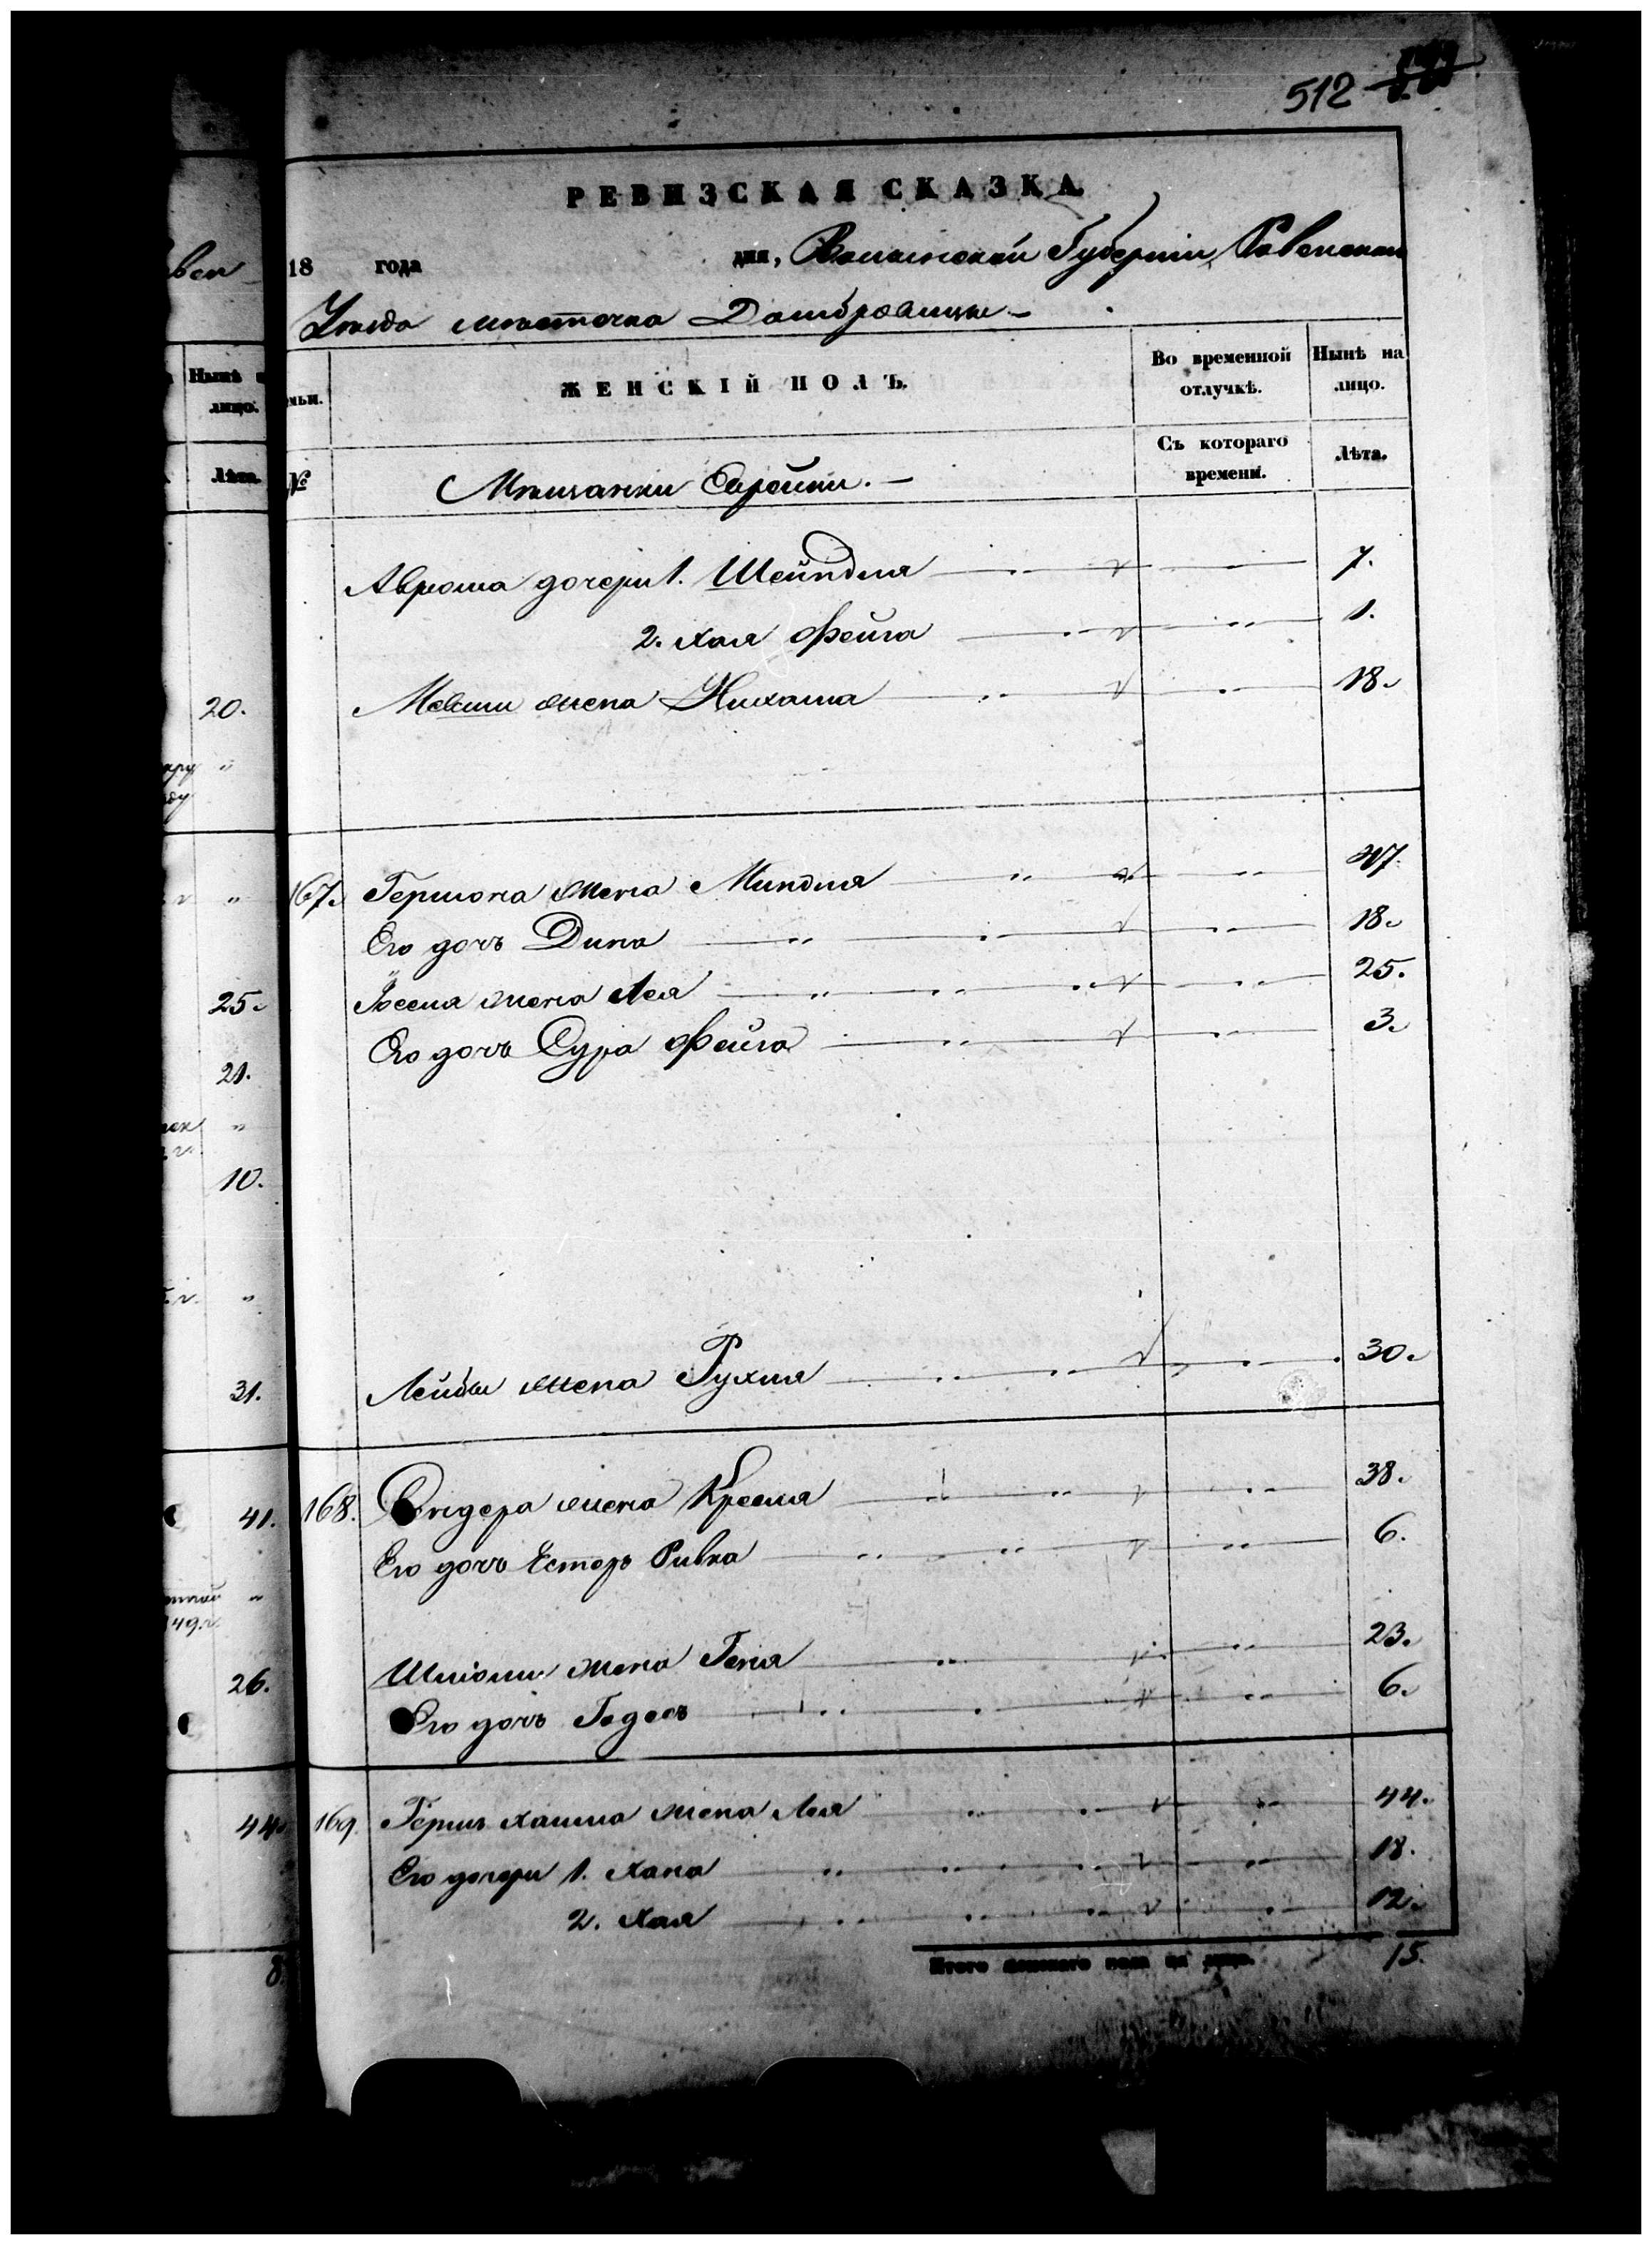 512
РЕВИЗСКАЯ СКАЗКА.
18 года дня, Волынской Губерніи, Ровенскаго
Уѣзда мѣстечка Домбровицы
мьи. ЖЕНСКІЙ ПОЛЪ. Во временной отлучкѣ. Нынѣ на лицо.
№ Мѣщанки Еврейки. Съ котораго времени. Лѣта.
Аврома дочери 1. Шейндля 7.
2. Хая Фейга 1.
Мовши жена Нихама 18.
167. Гершона жена Миндля 47.
Его дочь Дина 18.
Іоселя жена Лея 25.
Его дочь Сура Фейга 3.
Лейбы жена Рухля 30.
168. Сендера жена Крейля 38.
Его дочь Естеръ Ривка 6.
Шліомы жена Геня 23.
Его дочь Годесъ 6.
169. Гершъ Хаима жена Лея 44.
Его дочери 1. Хана 18.
2. Хая 12.
Итого женскаго пола на лицо. 15.
вен
Нынѣ
лицо.
Лѣта.
20.
25.
21.
10.
31.
41.
49.г.
26.
44.
8